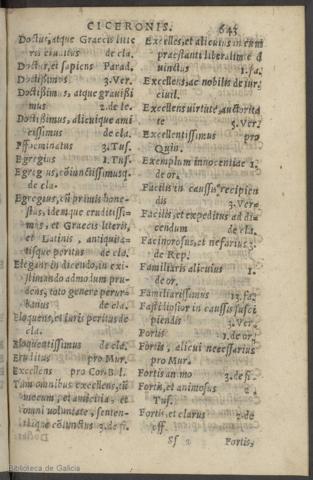 CICERONIS. 645
Doctus, atque Graecis lite
ris eruditus de cla.
Doctor, et sapiens Parad.
Doctissimus 3. Ver.
Doctissimus, atque gravissi
mus 2. de le.
Doctissimus, alicuique ami
cissimus de cla.
Effoeminatus 3. Tus.
Egregius 1. Tus.
Egregius, coniunctissimusq́.
de cla.
Egregius, cū primis hone-
stus, idemque eruditissi-
mus, et Graecis literis,
et Latinis, antiquita-
tisque peritus de cla.
Elegans in dicendo, in exi-
stimando admodum pru-
dens, toto genere perur-
banus de cla.
Eloquens, et iuris peritus de
cla.
Eloquentissimus de cla.
Eruditus pro Mur.
Excellens pro Cor. B. l.
Tam omnibus excellens, cū
mecum, et amicitia, et
omni voluntate, senten-
tiaque coniunctus 3. de fi.
Excelles, et alicuius in eum
praestanti liberalitate d
vinctus 1. fa.
Excellens, ac nobilis de iur.
civil.
Excellens virtute, auctorita
te 5. Ver.
Excellentissimus pro
Quin.
Exemplum innocentiae 1.
de or.
Facilis in caussis recipien
dis 3. Ver.
Facilis, et expeditus ad di-
cendum de cla.
Facinorosus, et nefarius 3.
de Rep.
Familiaris alicuius 1.
de or.
Familiarissimus 13. fa.
Fastidiosior in caussis susci
piendis 3. Ver.
Fortis 1. de or.
Fortis, alicui necessarius
pro Mur.
Fortis animo 3. de fi.
Fortis, et animosus 2.
Tus.
Fortis, et clarus 2. de
off.
Sf 2 Fortis,
Biblioteca de Galicia